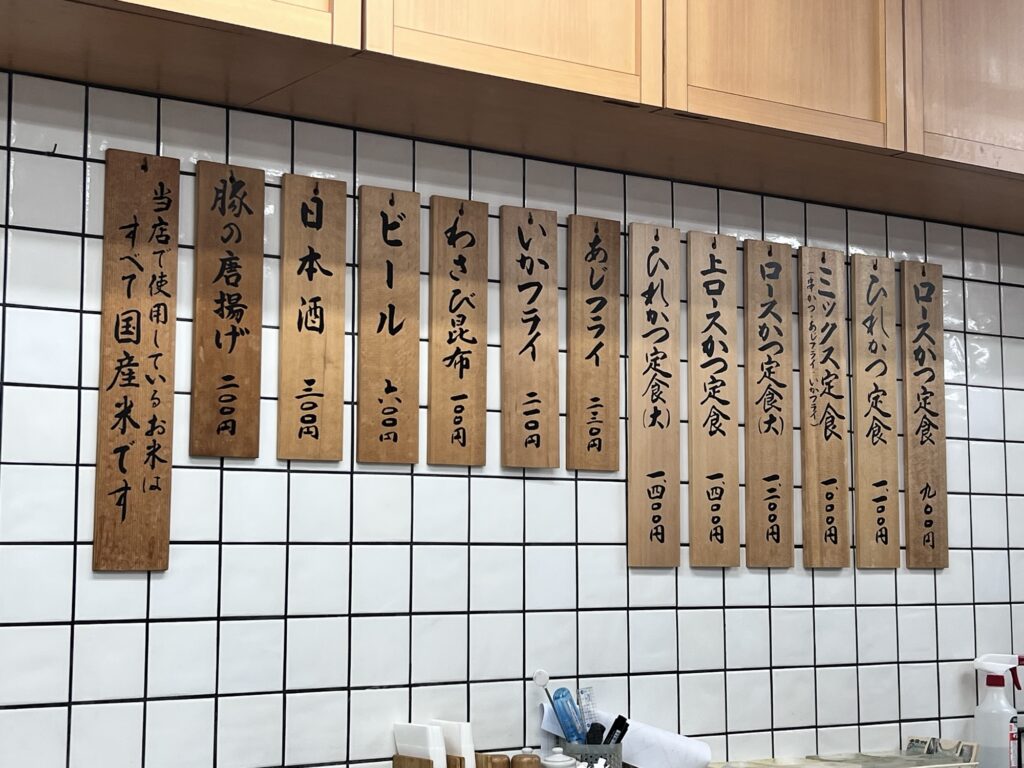 ロースかつ定食 九〇〇円
ひれかつ定食 一、一〇〇円
ミックス定食 一、〇〇〇円
(串かつ・あじフライ、いかフライ)
ロースかつ定食(大) 一、二〇〇円
上ロースかつ定食 一、四〇〇円
ひれかつ定食(大) 一、四〇〇円
あじフライ 二三〇円
いかフライ 二一〇円
わさび昆布 一〇〇円
ビール 六〇〇円
日本酒 三〇〇円
豚の唐揚げ 二〇〇円
当店で使用しているお米は
すべて国産米です